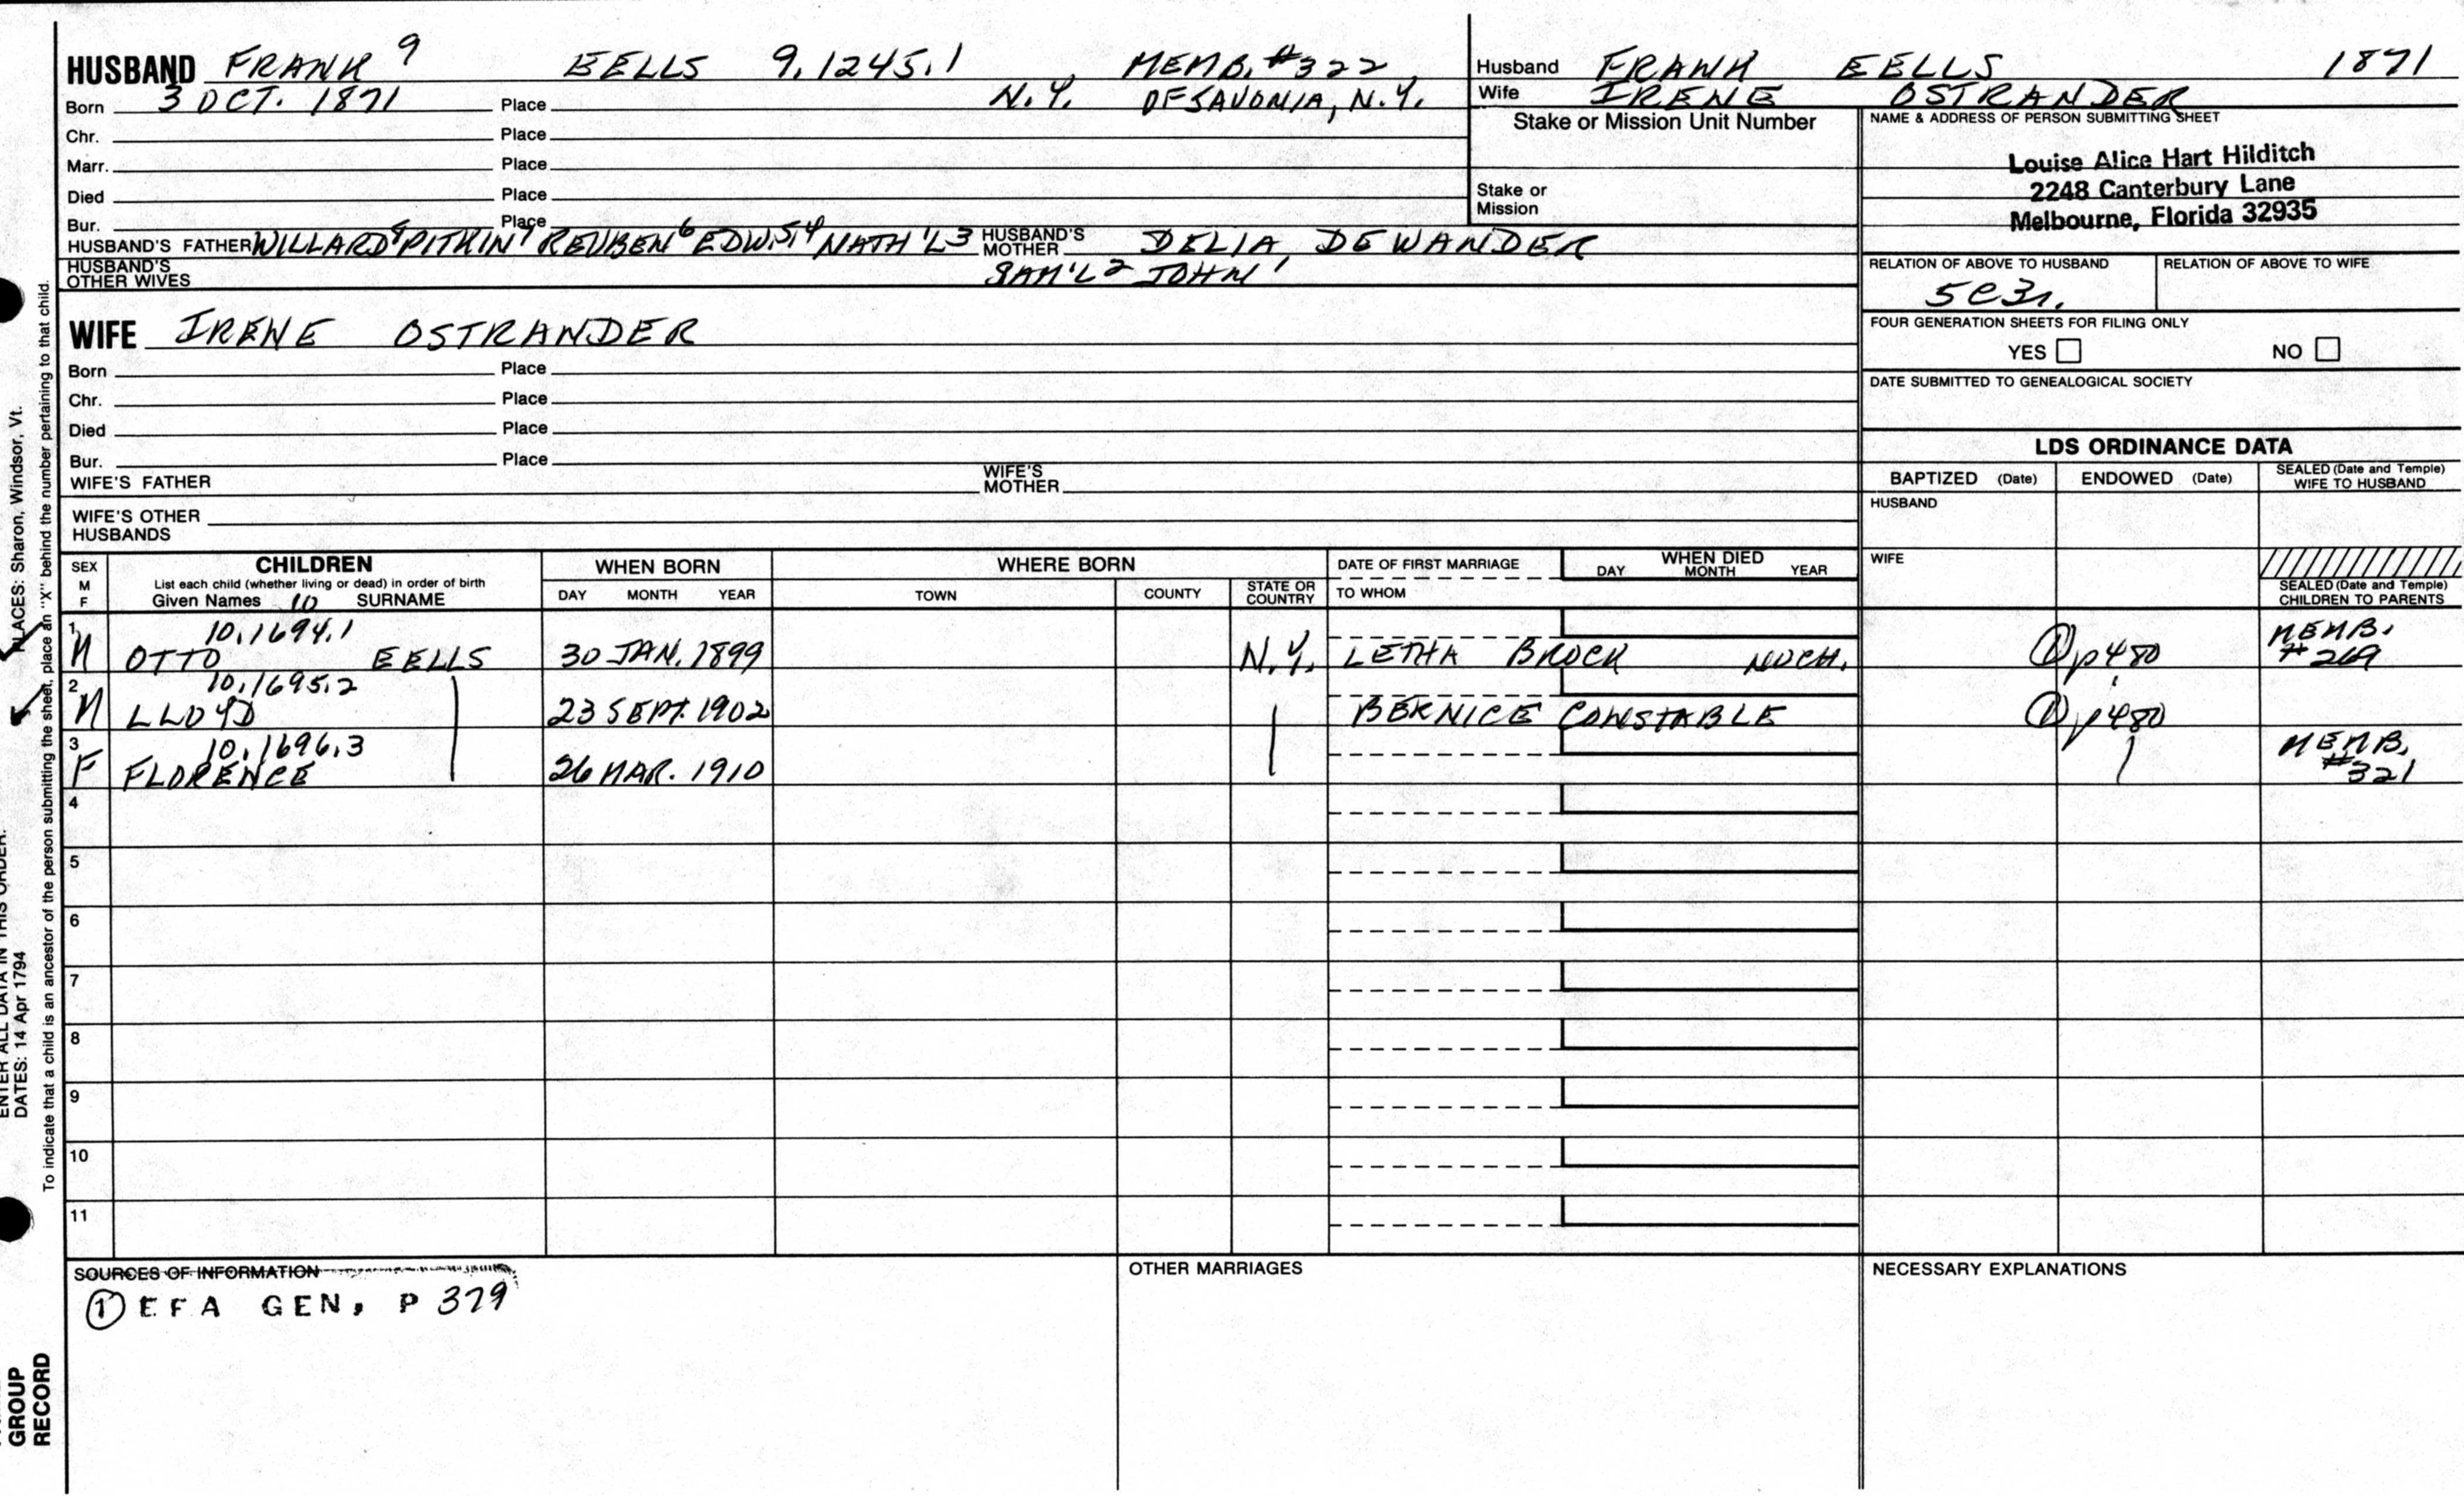 HUSBAND FRANK 9 EELLS 9.1245.1 MEMB. #322
Born 3 OCT. 1871 Place N.Y. OF SAVONIA, N.Y.
Chr. Place
Marr. Place
Died Place
Bur. Place
HUSBAND'S FATHER WILLARD 8 PITKIN 7 REUBEN 6 EDW. 5,4 NATH'L 3 HUSBAND'S MOTHER DELIA DEWANDER
HUSBAND'S OTHER WIVES SAM'L 2 JOHN 1
Husband FRANK EELLS 1871
Wife IRENE OSTRANDER
Stake or Mission Unit Number
Stake or Mission
NAME & ADDRESS OF PERSON SUBMITTING SHEET
Louise Alice Hart Hilditch
2248 Canterbury Lane
Melbourne, Florida 32935
RELATION OF ABOVE TO HUSBAND RELATION OF ABOVE TO WIFE
5C3r.
FOUR GENERATION SHEETS FOR FILING ONLY
YES NO
DATE SUBMITTED TO GENEALOGICAL SOCIETY
WIFE IRENE OSTRANDER
Born Place
Chr. Place
Died Place
Bur. Place
WIFE'S FATHER WIFE'S MOTHER
WIFE'S OTHER HUSBANDS
LDS ORDINANCE DATA
BAPTIZED (Date) ENDOWED (Date) SEALED (Date and Temple) WIFE TO HUSBAND
HUSBAND
WIFE
SEALED (Date and Temple) CHILDREN TO PARENTS
SEX M F
CHILDREN
List each child (whether living or dead) in order of birth
Given Names 10 SURNAME
WHEN BORN
DAY MONTH YEAR
WHERE BORN
TOWN COUNTY STATE OR COUNTRY
DATE OF FIRST MARRIAGE
TO WHOM
WHEN DIED
DAY MONTH YEAR
1 10.1694.1
M OTTO EELLS 30 JAN. 1899 N.Y. LETHA BROCK MICH. ① p480 MEMB. #269
2 10.1695.2
M LLOYD 23 SEPT. 1902 BERNICE CONSTABLE ① p480
3 10.1696.3
F FLORENCE 26 MAR. 1910 MEMB. #321
4
5
6
7
8
9
10
11
SOURCES OF INFORMATION
① EFA GEN, P 379
OTHER MARRIAGES
NECESSARY EXPLANATIONS
PLACES: Sharon, Windsor, Vt.
To indicate that a child is an ancestor of the person submitting the sheet, place an "X" behind the number pertaining to that child.
ENTER ALL DATA IN THIS ORDER:
DATES: 14 Apr 1794
GROUP
RECORD